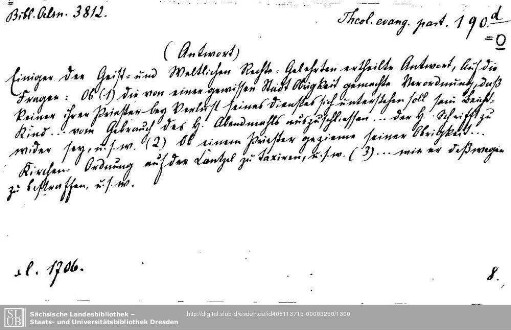 Bibl. Oelsn. 3812.
Theol. evang. part. 190.d
=0
(Antwort)
Einiger der Geist- und Weltlichen Rechts-Gelehrten ertheilte Antwort, auf die
Fragen: Ob (1) die von einer gewissen Stadt Obrigkeit gemachte Verordnung, daß
keiner ihrer Priester bey Verlust seines Dienstes sich unterstehen soll sein Beicht-
Kind .. vom Gebrauch des H. Abendmahls auszuschliessen ... der H. Schrift zu
wider sey, u.s.w. (2) Ob einem Priester gezieme seiner Obrigkeit ...
Kirchen Ordnung auf der Cantzel zu taxiren, u.s.w. (3) ... wie er deßwegen
zu bestraffen, u.s.w.
s.l. 1706.
8.
SLUB
Sächsische Landesbibliothek –
Staats- und Universitätsbibliothek Dresden